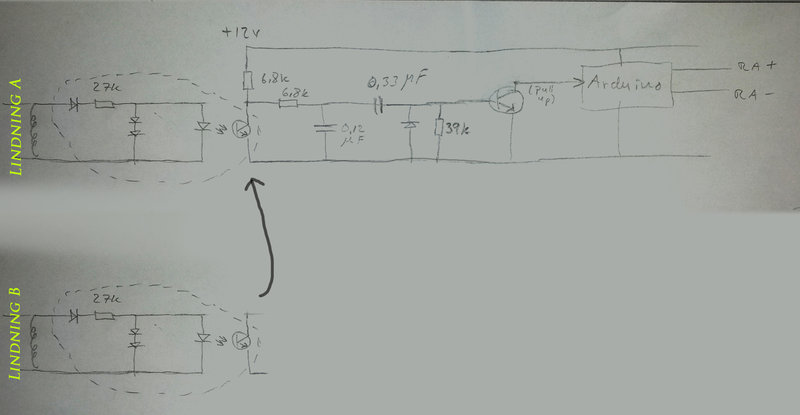 +12V
LINDNING A
27k
6,8k
6,8k
0,33 µF
0,12
µF
39k
(pull
up)
Arduino
RA+
RA-
LINDNING B
27k